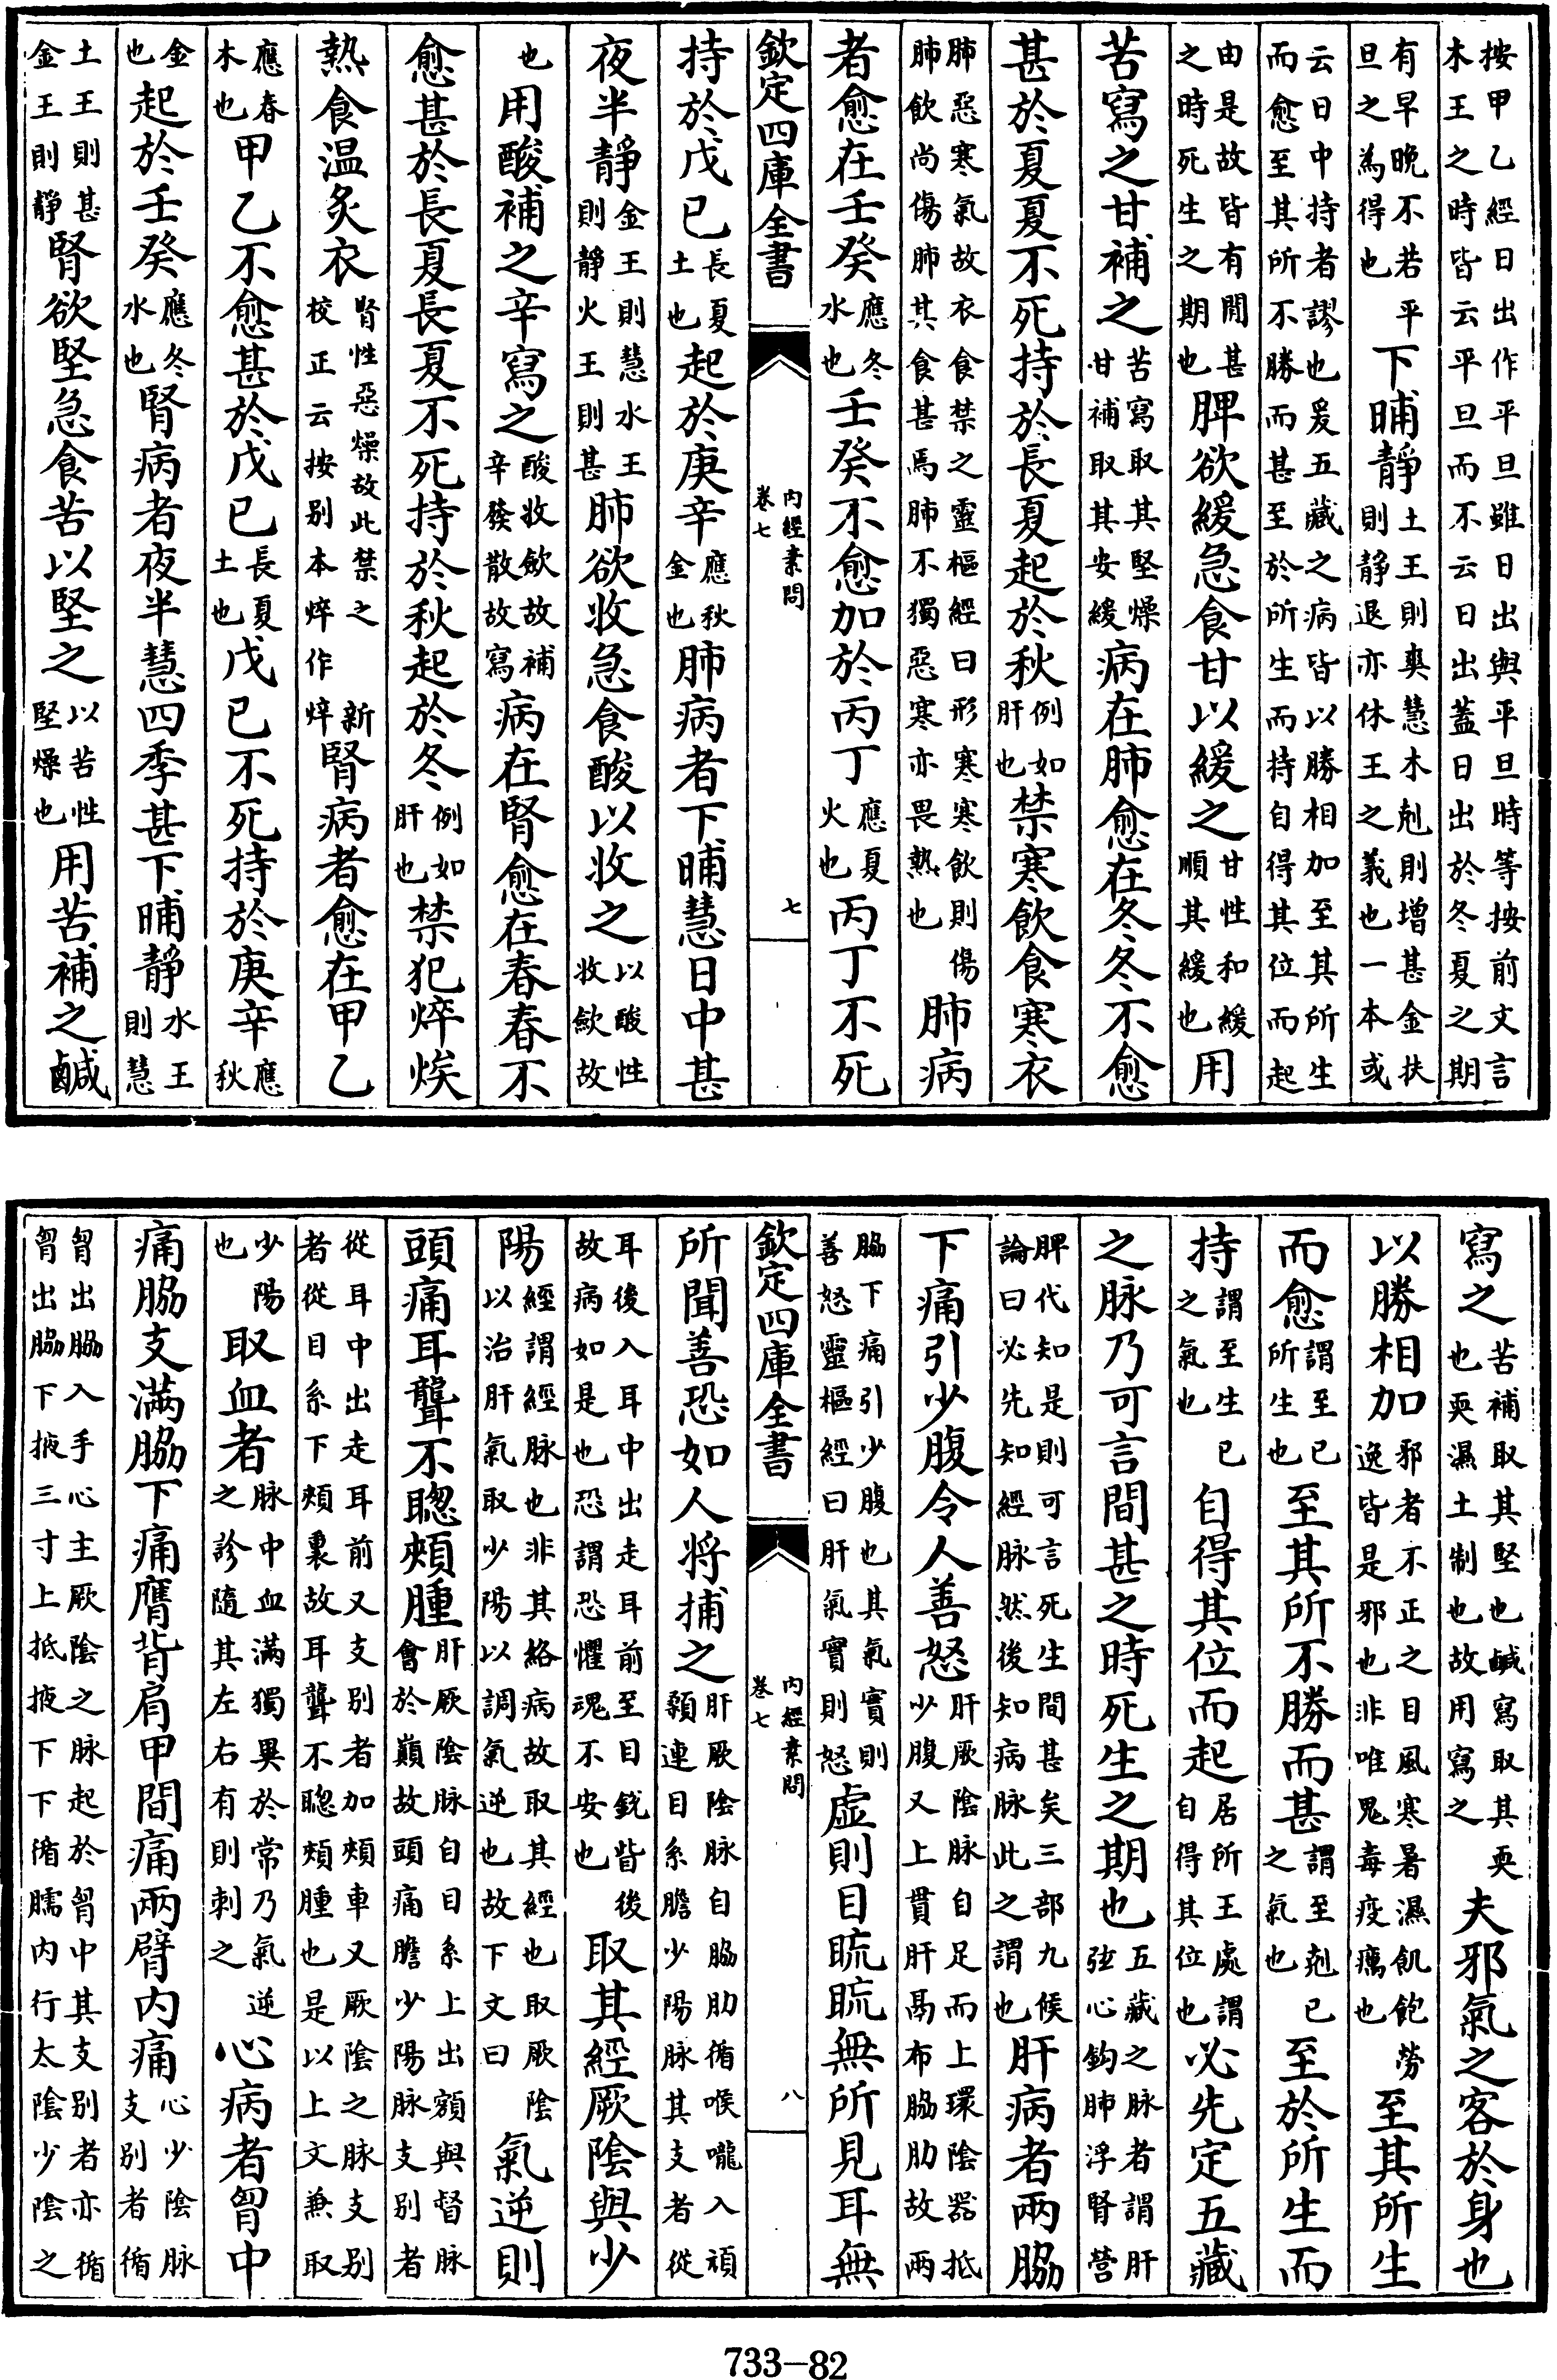 按甲乙經日出作平旦雖日出與平旦時等按前文言木王之時皆云平旦而不云日出蓋日出於冬夏之期
有早晚不若平旦之為得也下晡靜土王則爽慧木剋則增甚金扶則靜退亦休王之義也一本或
云日中持者謬也爰五藏之病皆以勝相加至其所生而愈至其所不勝而甚至於所生而持自得其位而起
由是故皆有間甚之時死生之期也脾欲緩急食甘以緩之甘性和緩順其緩也用
苦寫之甘補之苦寫取其堅燥甘補取其安緩病在肺愈在冬冬不愈
甚於夏夏不死持於長夏起於秋例如肝也禁寒飲食寒衣
肺惡寒氣故衣食禁之靈樞經曰形寒寒飲則傷肺飲尚傷肺其食甚焉肺不獨惡寒亦畏熱也肺病
者愈在壬癸應冬水也壬癸不愈加於丙丁應夏火也丙丁不死
欽定四庫全書 內經素問 卷七 七
持於戊已長夏土也起於庚辛應秋金也肺病者下晡慧日中甚
夜半靜金王則慧水王則靜火王則甚肺欲收急食酸以收之以酸性收斂故
也用酸補之辛寫之酸收斂故補辛發散故寫病在腎愈在春春不
愈甚於長夏長夏不死持於秋起於冬例如肝也禁犯焠㶼
熱食温炙衣腎性惡燥故此禁之新校正云按别本焠作焠腎病者愈在甲乙
應春木也甲乙不愈甚於戊已長夏土也戊已不死持於庚辛應秋
金也起於壬癸應冬水也腎病者夜半慧四季甚下晡靜水王則慧
土王則甚金王則靜腎欲堅急食苦以堅之以苦性堅燥也用苦補之鹹
寫之苦補取其堅也鹹寫取其耎也耎濕土制也故用寫之夫邪氣之客於身也
以勝相加邪者不正之目風寒暑濕飢飽勞逸皆是邪也非唯鬼毒疫癘也至其所生
而愈謂至已所生也至其所不勝而甚謂至剋已之氣也至於所生而
持謂至生已之氣也自得其位而起居所王處謂自得其位也必先定五藏
之脉乃可言間甚之時死生之期也五藏之脉者謂肝弦心鈎肺浮腎營
脾代知是則可言死生間甚矣三部九候論曰必先知經脉然後知病脉此之謂也肝病者兩脇
下痛引少腹令人善怒肝厥陰脉自足而上環陰器抵少腹又上貫肝鬲布脇肋故兩
脇下痛引少腹也其氣實則善怒靈樞經曰肝氣實則怒虛則目䀮䀮無所見耳無
欽定四庫全書 內經素問 卷七 八
所聞善恐如人將捕之肝厥陰脉自脇肋循喉嚨入頏顙連目系膽少陽脉其支者從
耳後入耳中出走耳前至目銳眥後故病如是也恐謂恐懼魂不安也取其經厥陰與少
陽經謂經脉也非其絡病故取其經也取厥陰以治肝氣取少陽以調氣逆也故下文曰氣逆則
頭痛耳聾不聰頰腫肝厥陰脉自目系上出額與督脉會於巔故頭痛膽少陽脉支别者
從耳中出走耳前又支别者加頰車又厥陰之脉支别者從目系下頰裏故耳聾不聰頰腫也是以上文兼取
少陽也取血者脉中血滿獨異於常乃氣逆之診隨其左右有則刺之心病者胷中
痛脇支滿脇下痛膺背肩甲間痛兩臂内痛心少陰脉支别者循
胷出脇入手心主厥陰之脉起於胷中其支别者亦循胷出脇下掖三寸上抵掖下下循臑内行太陰少陰之
733—82